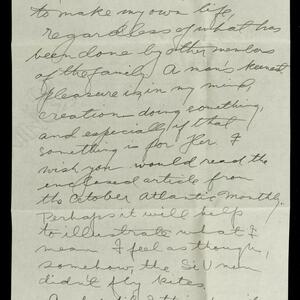 to make my own life,
regardless of what has
been done by other members
of the family. A man's keenest
pleasure is in my mind,
creation doing something,
and especially if that
something is for Her. I
wish you would read the
enclosed article from
the October Atlantic Monthly.
Perhaps it will help
to illustrate what I
mean. I feel as though,
somehow, the Si U men
didn't fly kites.